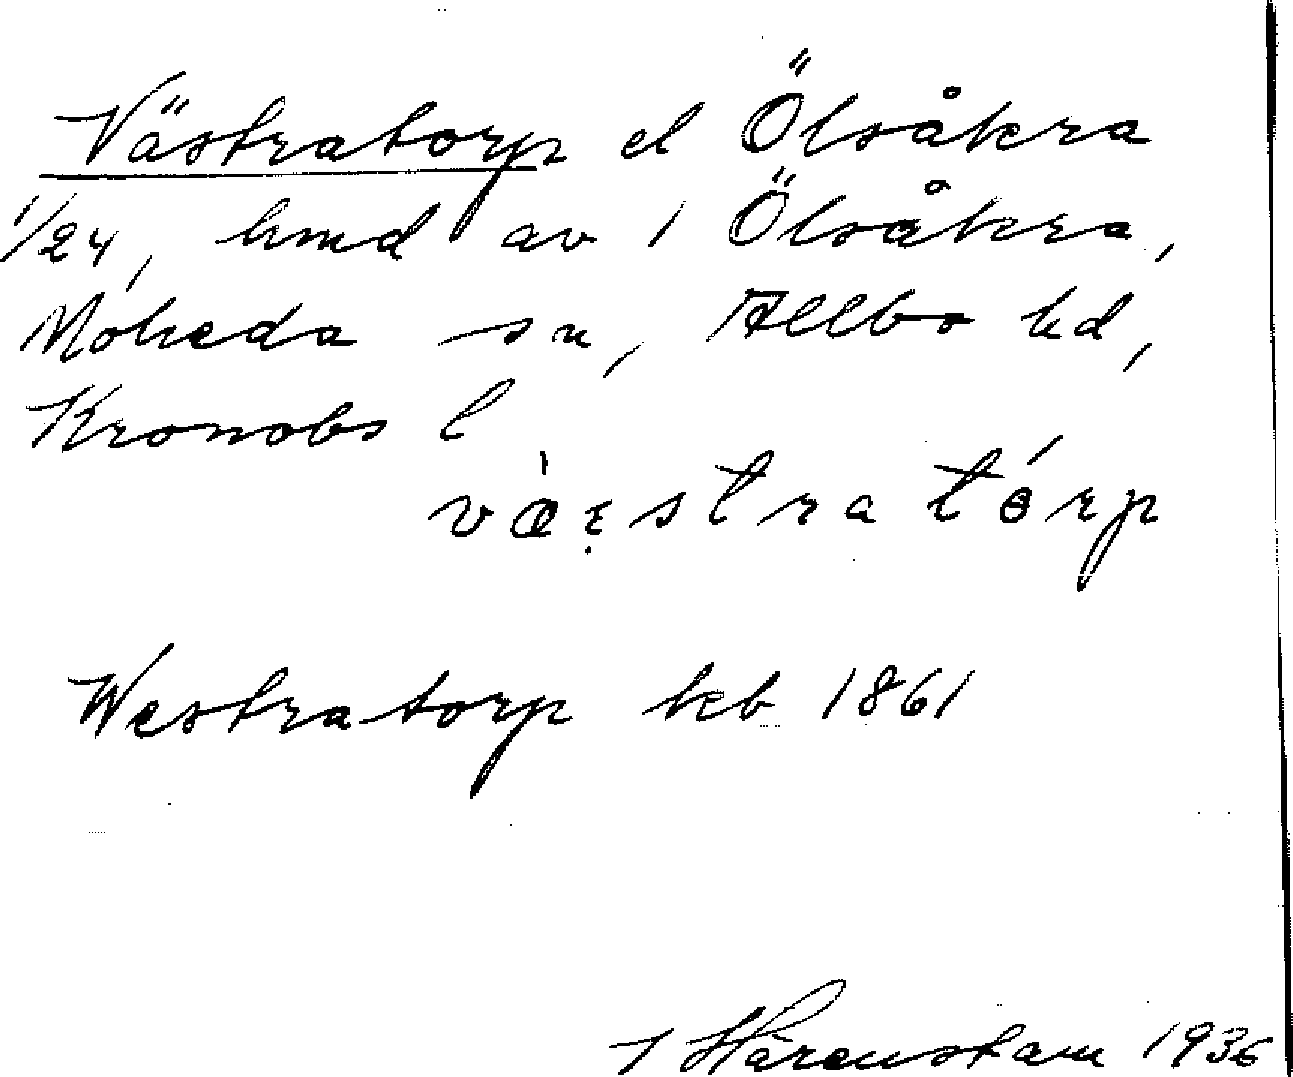 Västratorp el Ölsåkra
1/24, hmd av 1 Ölsåkra,
Moheda sn, Allbo hd,
Kronobs l
væ̀ꜫ̣stra tórp
Westratorp keb 1861
I Härenstam 1936